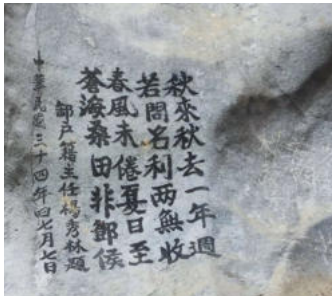 秋來秋去一年週
若問名利两無收
春風未倦夏日至
蒼海桑田非鄧侯
部戶籍主任楊秀林題
中華民國三十四年四七月七日